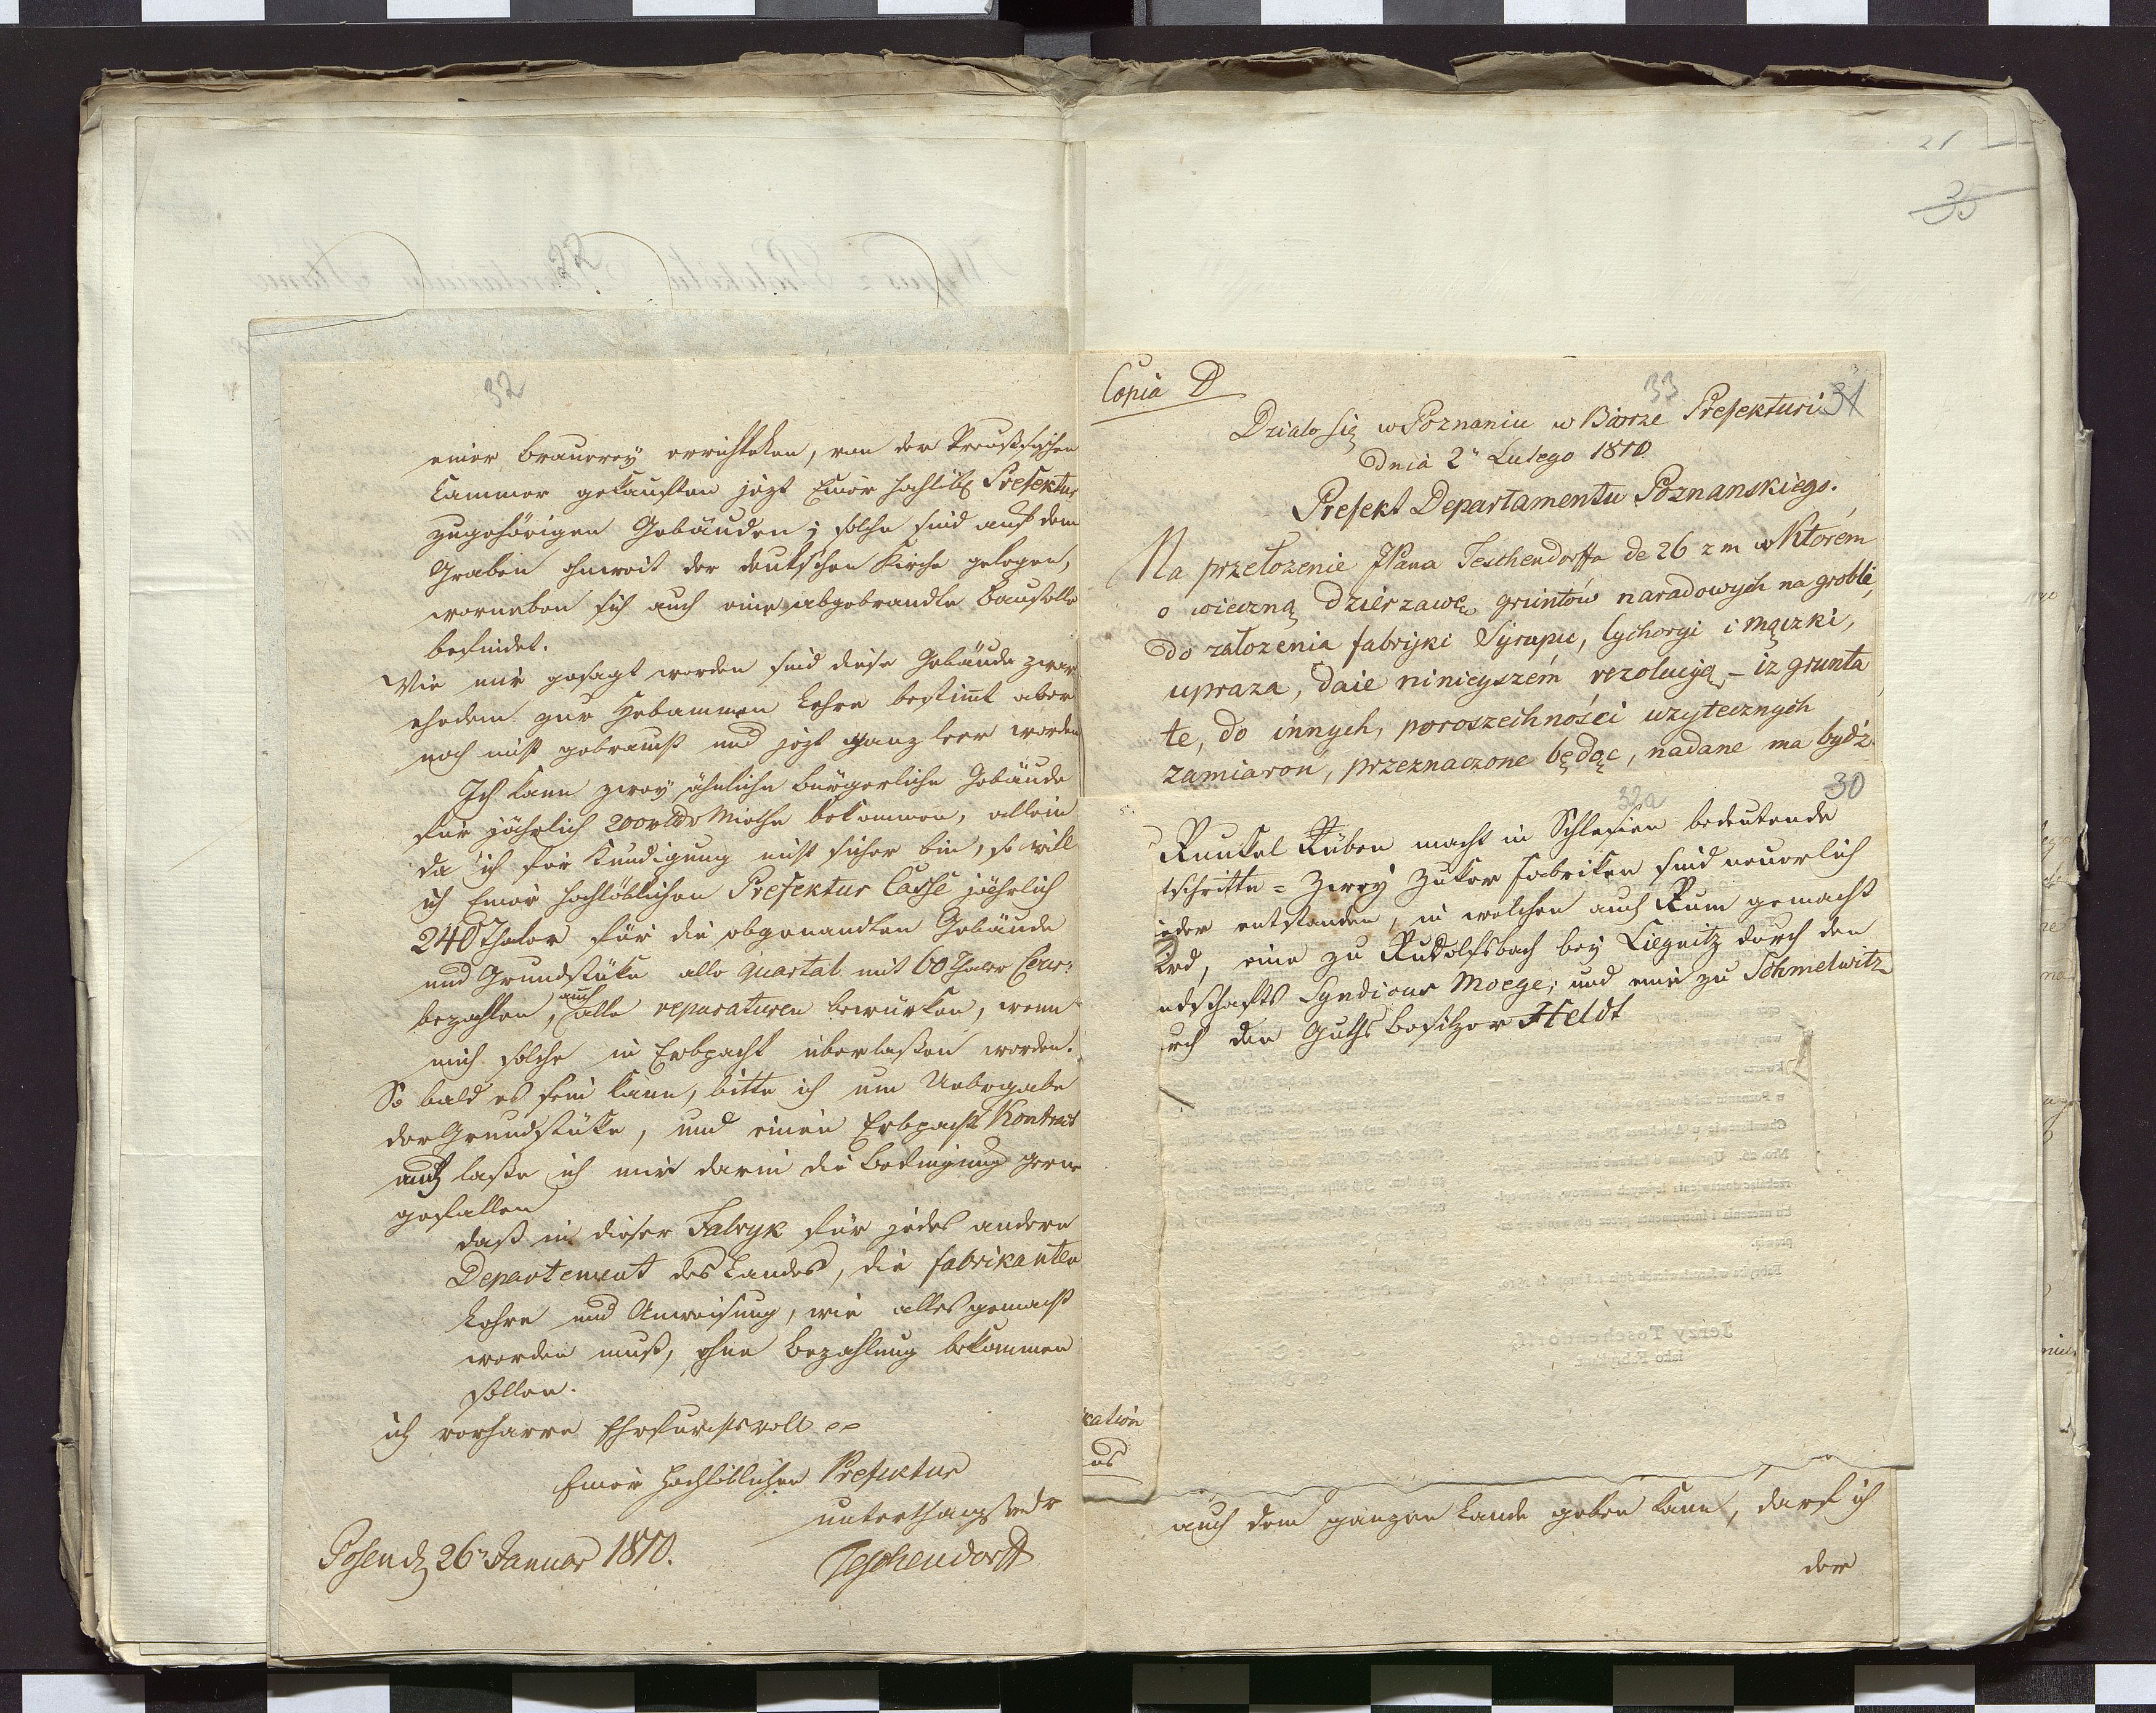 32
einer Brauerey errichteten, von der Preußischen
Cammer gekauften jezt Einer Hochlöbl Prefektur
zugehörigen Gebäuden; solche sind auf dem
Graben ohnweit der deutschen Kirche gelegen,
worneben sich auch eine abgebrandte Baustelle
befindet.
Wie mir gesagt worden sind diese Gebäude zwar
ehedem zur Hebammen Lehre bestimt aber
noch nicht gebraucht und jezt ganz leer worden
Ich kann zwey ähnliche bürgerliche Gebäude
für jährlich 200 rtlr Miethe bekommen, allein
da ich für Kündigung nicht sicher bin, so will
ich Einer Hochlöblichen Prefektur Casse jährlich
240 Thaler für die obgenandten Gebäude
und Grundstüke alle Quartal mit 60 Thaler Cour:
bezahlen, auch alle reparaturen bewürken, wenn
mich solche in Erbpacht überlaßen werden.
So bald es sein kann, bitte ich um Uebergabe
der Grundstüke, und einen Erbpachts Kontract
auch laße ich mir darin die Bedingung gerne
gefallen
daß in dieser Fabryk für jedes andere
Departement des Landes, die fabrikanten
Lehre und Anweisung, wie alles gemacht
werden muß, ohne Bezahlung bekommen
sollen.
ich verharre Ehrfurchtsvoll
Einer Hochlöblichen Prefektur
Posen d 26n Januar 1810.
Teschendorff
21
35
Copia D
33
31
Działo się w Poznaniu w Biorze Prefekturi
Dnia 2" Lutego 1810
Prefekt Departamentu Poznanskiego.
Na przełozenie JPana Teschendorffa de 26 z m w Ktorém
o wieczną dzierzawę gruntów naradowych na grobli,
do załozenia fabryki Syrupu, Cychoryi i mączki,
upraza, daie ninieyszém rezolucyą, - iz grunta
te, do innych, poroszechności uzytecznych
zamiaron, przeznaczone będąc, nadane ma bydź
32a
30
Runkel Rüben macht in Schlesien bedeutende
tschritte = Zwey Zuker Fabriken sind neuerlich
ieder entstanden, in welchen auch Rum gemacht
ird, eine zu Rudolfsbach bey Liegnitz durch den
ndschafts Syndicus Moege; und eine zu Schmelwitz
urch den Guths Besitzer Heldt
ication
us
auch dem ganzen Lande geben kann, darf ich
der